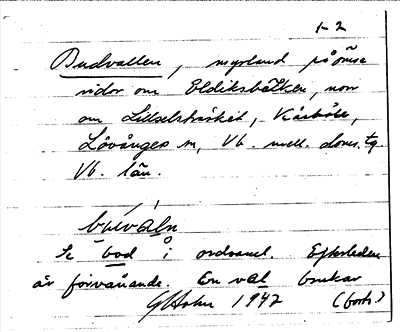 1-2
Budvallen, myrland på ömse
sidor om Eldiksbäcken, norr
om Lillselsträsket, Kåsböle,
Lövångers sn, Vb. mell. doms. tg.
Vb. län.
buvaln
Se bod i ordsaml. Efterleden
är förvånande. En val brukar
GHolm 1942 (forts)